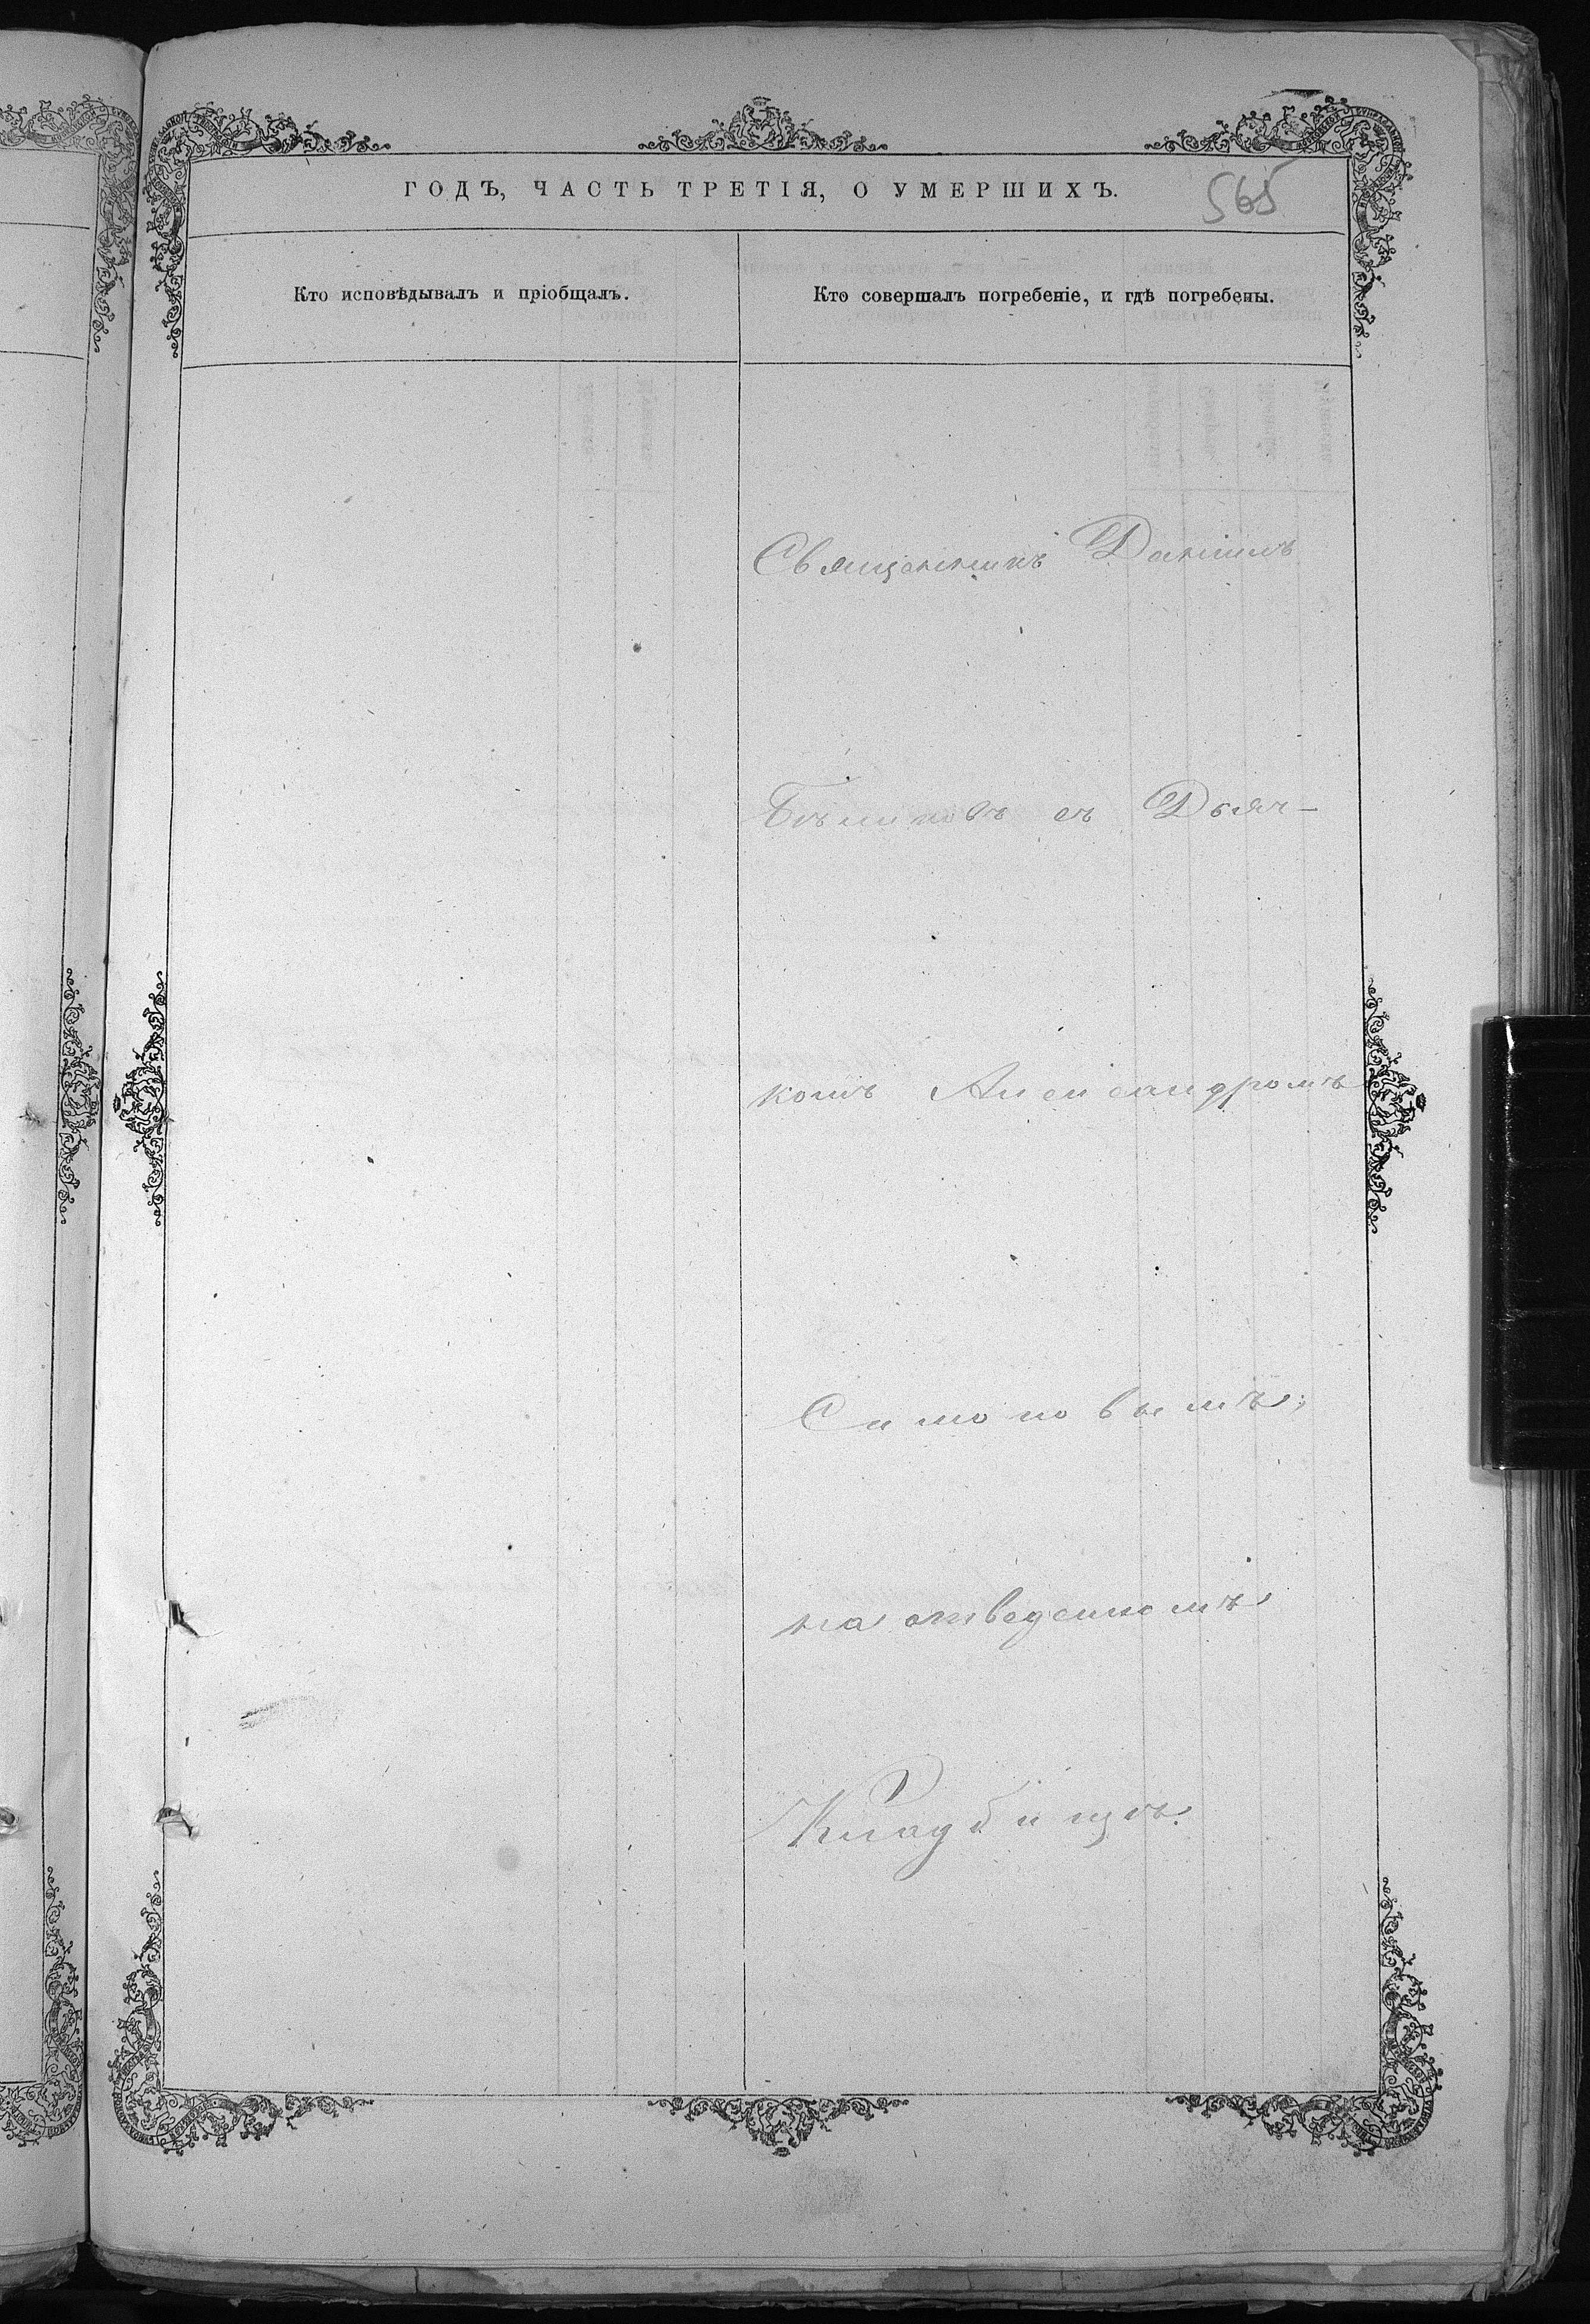 ГОДЪ, ЧАСТЬ ТРЕТІЯ, О УМЕРШИХЪ.
565
Кто исповѣдывалъ и пріобщалъ.
Кто совершалъ погребеніе, и гдѣ погребены.
Священникъ Даніилъ
Бѣликовъ съ Дьяч-
комъ Александромъ
Симоновымъ;
на отведенномъ
Кладбищѣ.